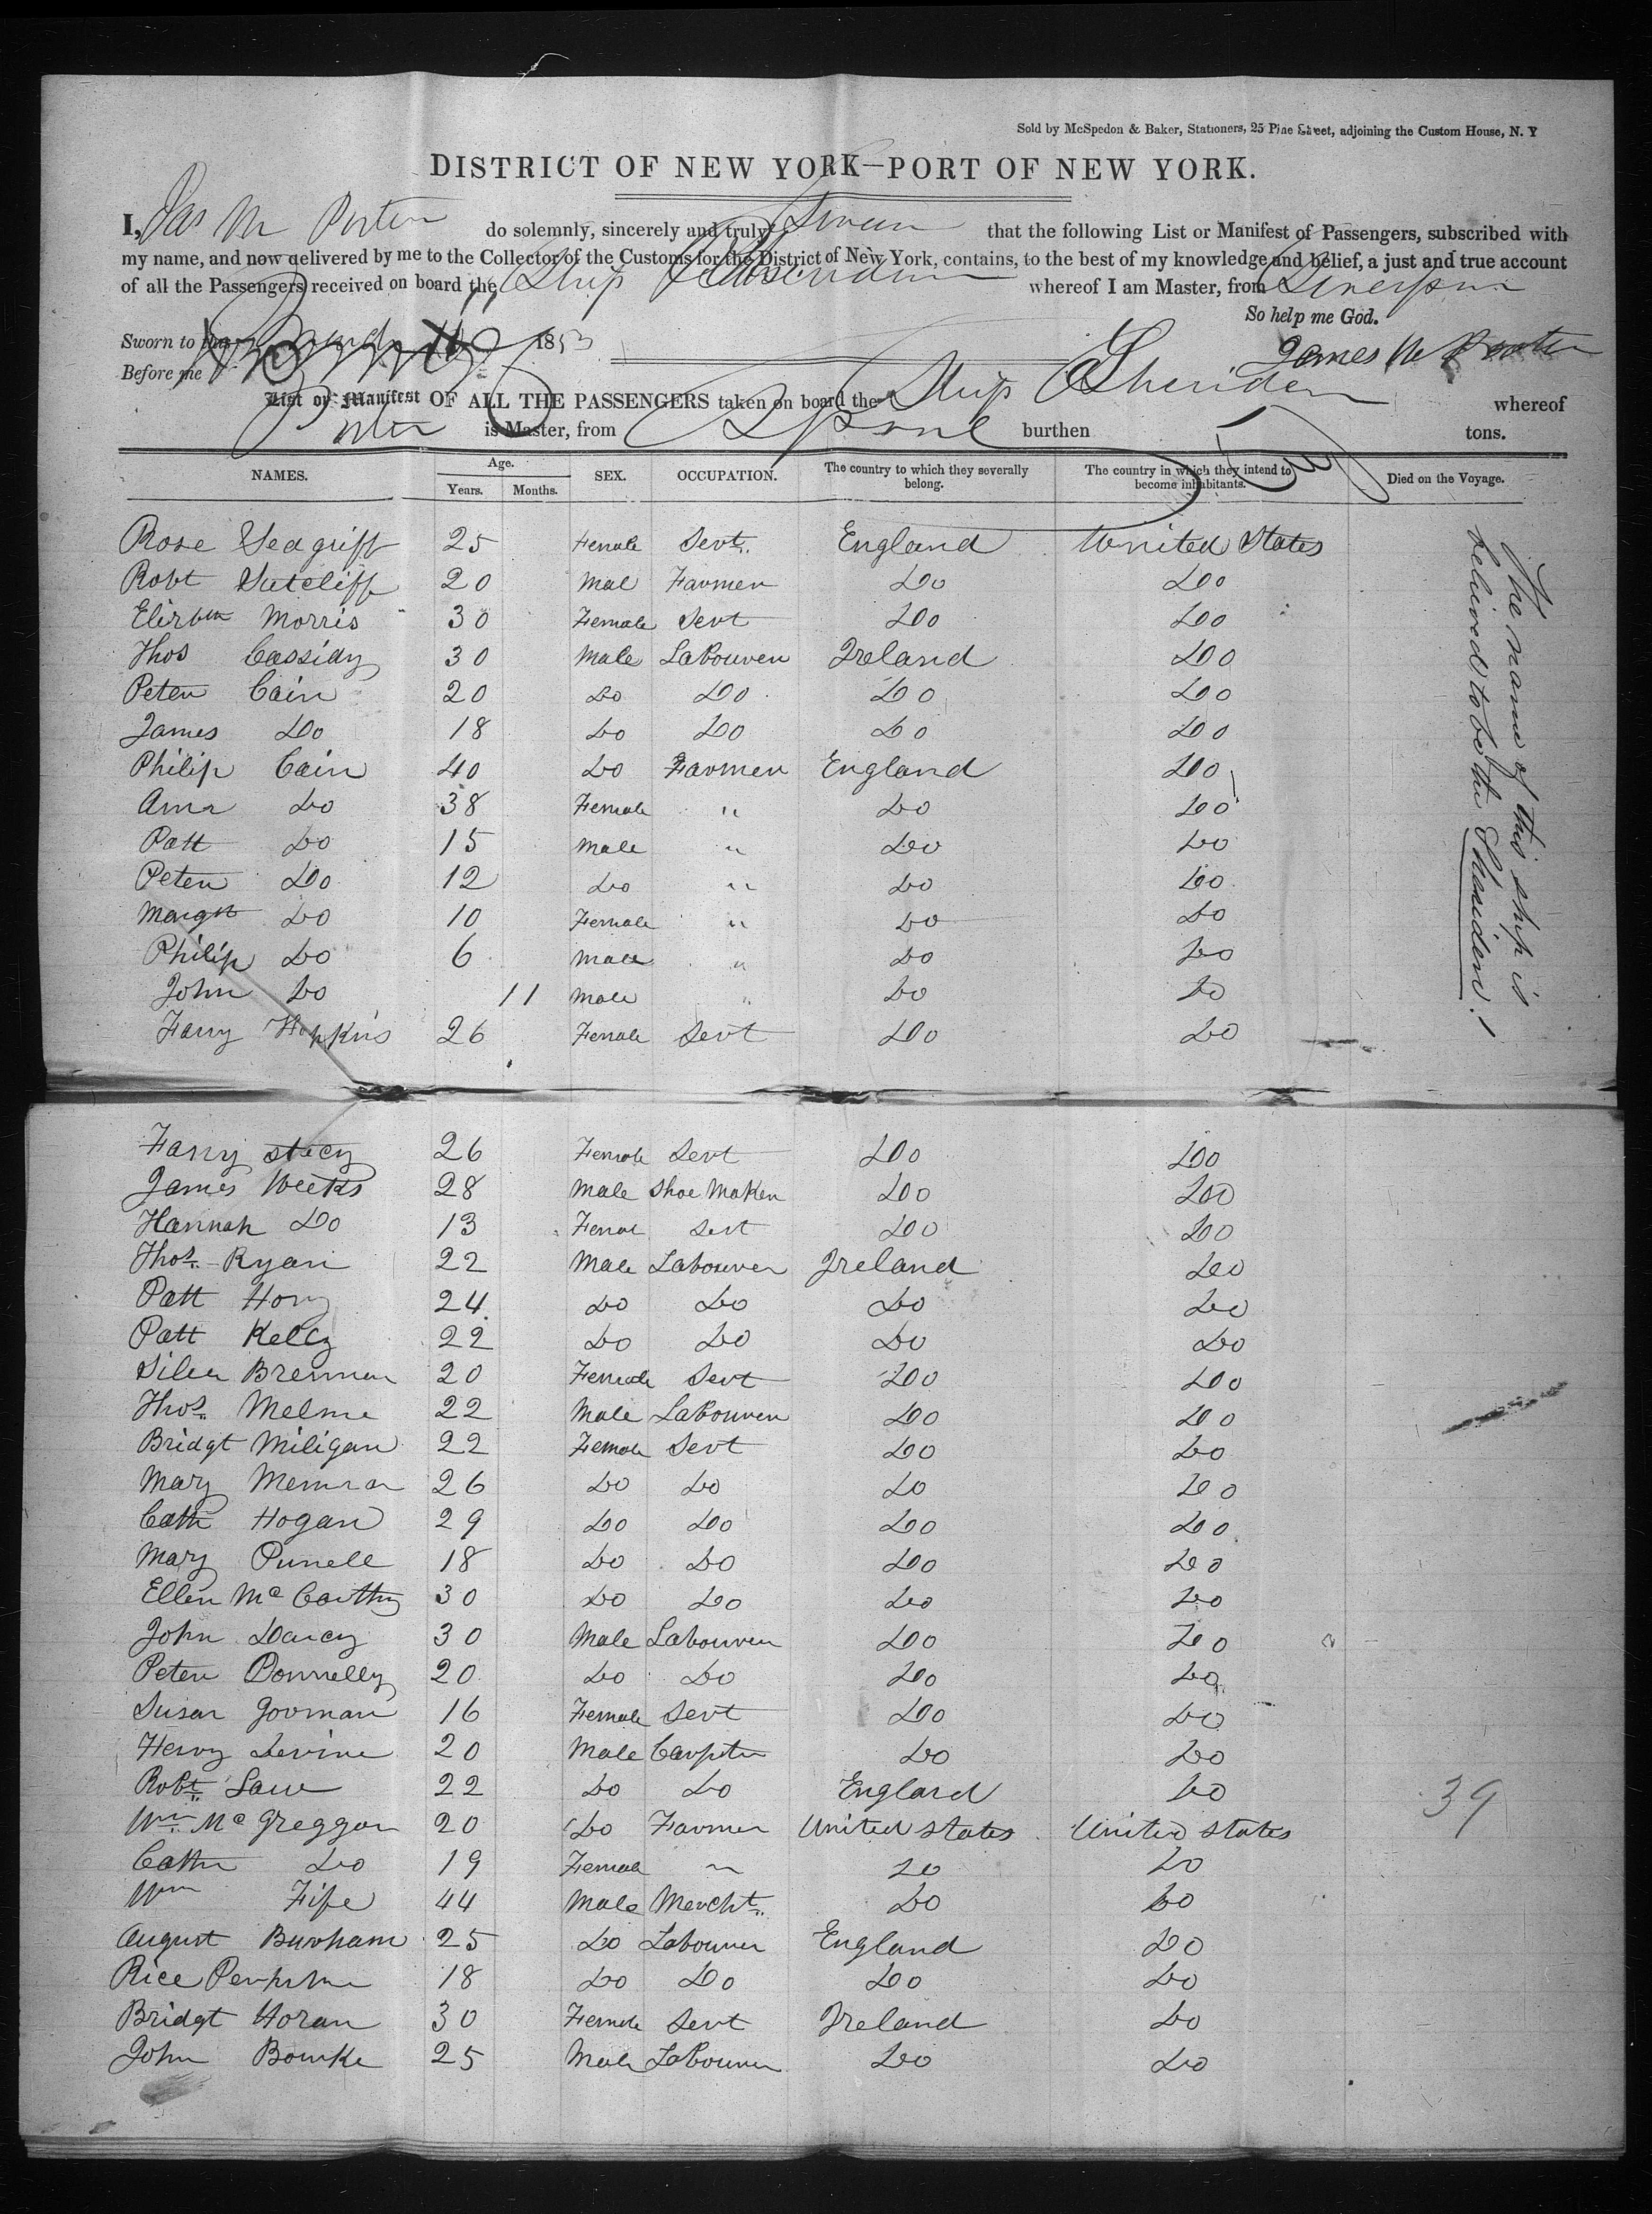 Sold by McSpedon & Baker, Stationers, 25 Pine Street, adjoining the Custom House, N. Y
DISTRICT OF NEW YORK—PORT OF NEW YORK.
I, Jas M Porter do solemnly, sincerely and truly Swear that the following List or Manifest of Passengers, subscribed with
my name, and now delivered by me to the Collector of the Customs for the District of New York, contains, to the best of my knowledge and belief, a just and true account
of all the Passengers received on board the Ship whereof I am Master, from Liverpool
So help me God.
Sworn to this 1853
James M Porter
Before me
List or Manifest OF ALL THE PASSENGERS taken on board the Ship Sheridan whereof
Porter is Master, from LPool burthen tons.
NAMES. Age. Years. Months. SEX. OCCUPATION. The country to which they severally belong. The country in which they intend to become inhabitants. Died on the Voyage.
Rose Seagriff 25 Female Servt. England United States
Robt Sutcliff 20 Mal Farmer Do Do
Elizbth Morris 30 Female Servt Do Do
Thos Cassidy 30 Male Labourer Ireland Do
Peter Cain 20 Do Do Do Do
James Do 18 Do Do Do Do
Philip Cain 40 Do Farmer England Do
Ann Do 38 Female " Do Do
Patt Do 15 Male " Do Do
Peter Do 12 Do " Do Do
Margt Do 10 Female " Do Do
Philip Do 6 Male " Do Do
John Do 11 Male " Do Do
Fanny Hopkins 26 Female Servt Do Do
Fanny Stacy 26 Female Servt Do Do
James Weeks 28 Male Shoe Maker Do Do
Hannah Do 13 Femal Servt Do Do
Thos. Ryan 22 Male Labourer Ireland Do
Patt Hory 24 Do Do Do Do
Patt Kelly 22 Do Do Do Do
Brennan 20 Female Servt Do Do
Thos. 22 Male Labourer Do Do
Bridgt Miligan 22 Female Servt Do Do
Mary 26 Do Do Do Do
Cath Hogan 29 Do Do Do Do
Mary 18 Do Do Do Do
Ellen McCarthy 30 Do Do Do Do
John Darcy 30 Male Labourer Do Do
Peter Donnelly 20 Do Do Do Do
Susan Gorman 16 Female Servt Do Do
Henry Levine 20 Male Carpter Do Do
Robt. Law 22 Do Do England Do
Wm. McGreggor 20 Do Farmer United States United States
Cathe Do 19 Female " Do Do
Wm Fife 44 Male Mercht. Do Do
August Burham 25 Do Labourer England Do
Rice 18 Do Do Do Do
Bridgt Horan 30 Female Servt Ireland Do
John Bourke 25 Male Labourer Do Do
The name of this ship is
believed to be the Sheridan!
39